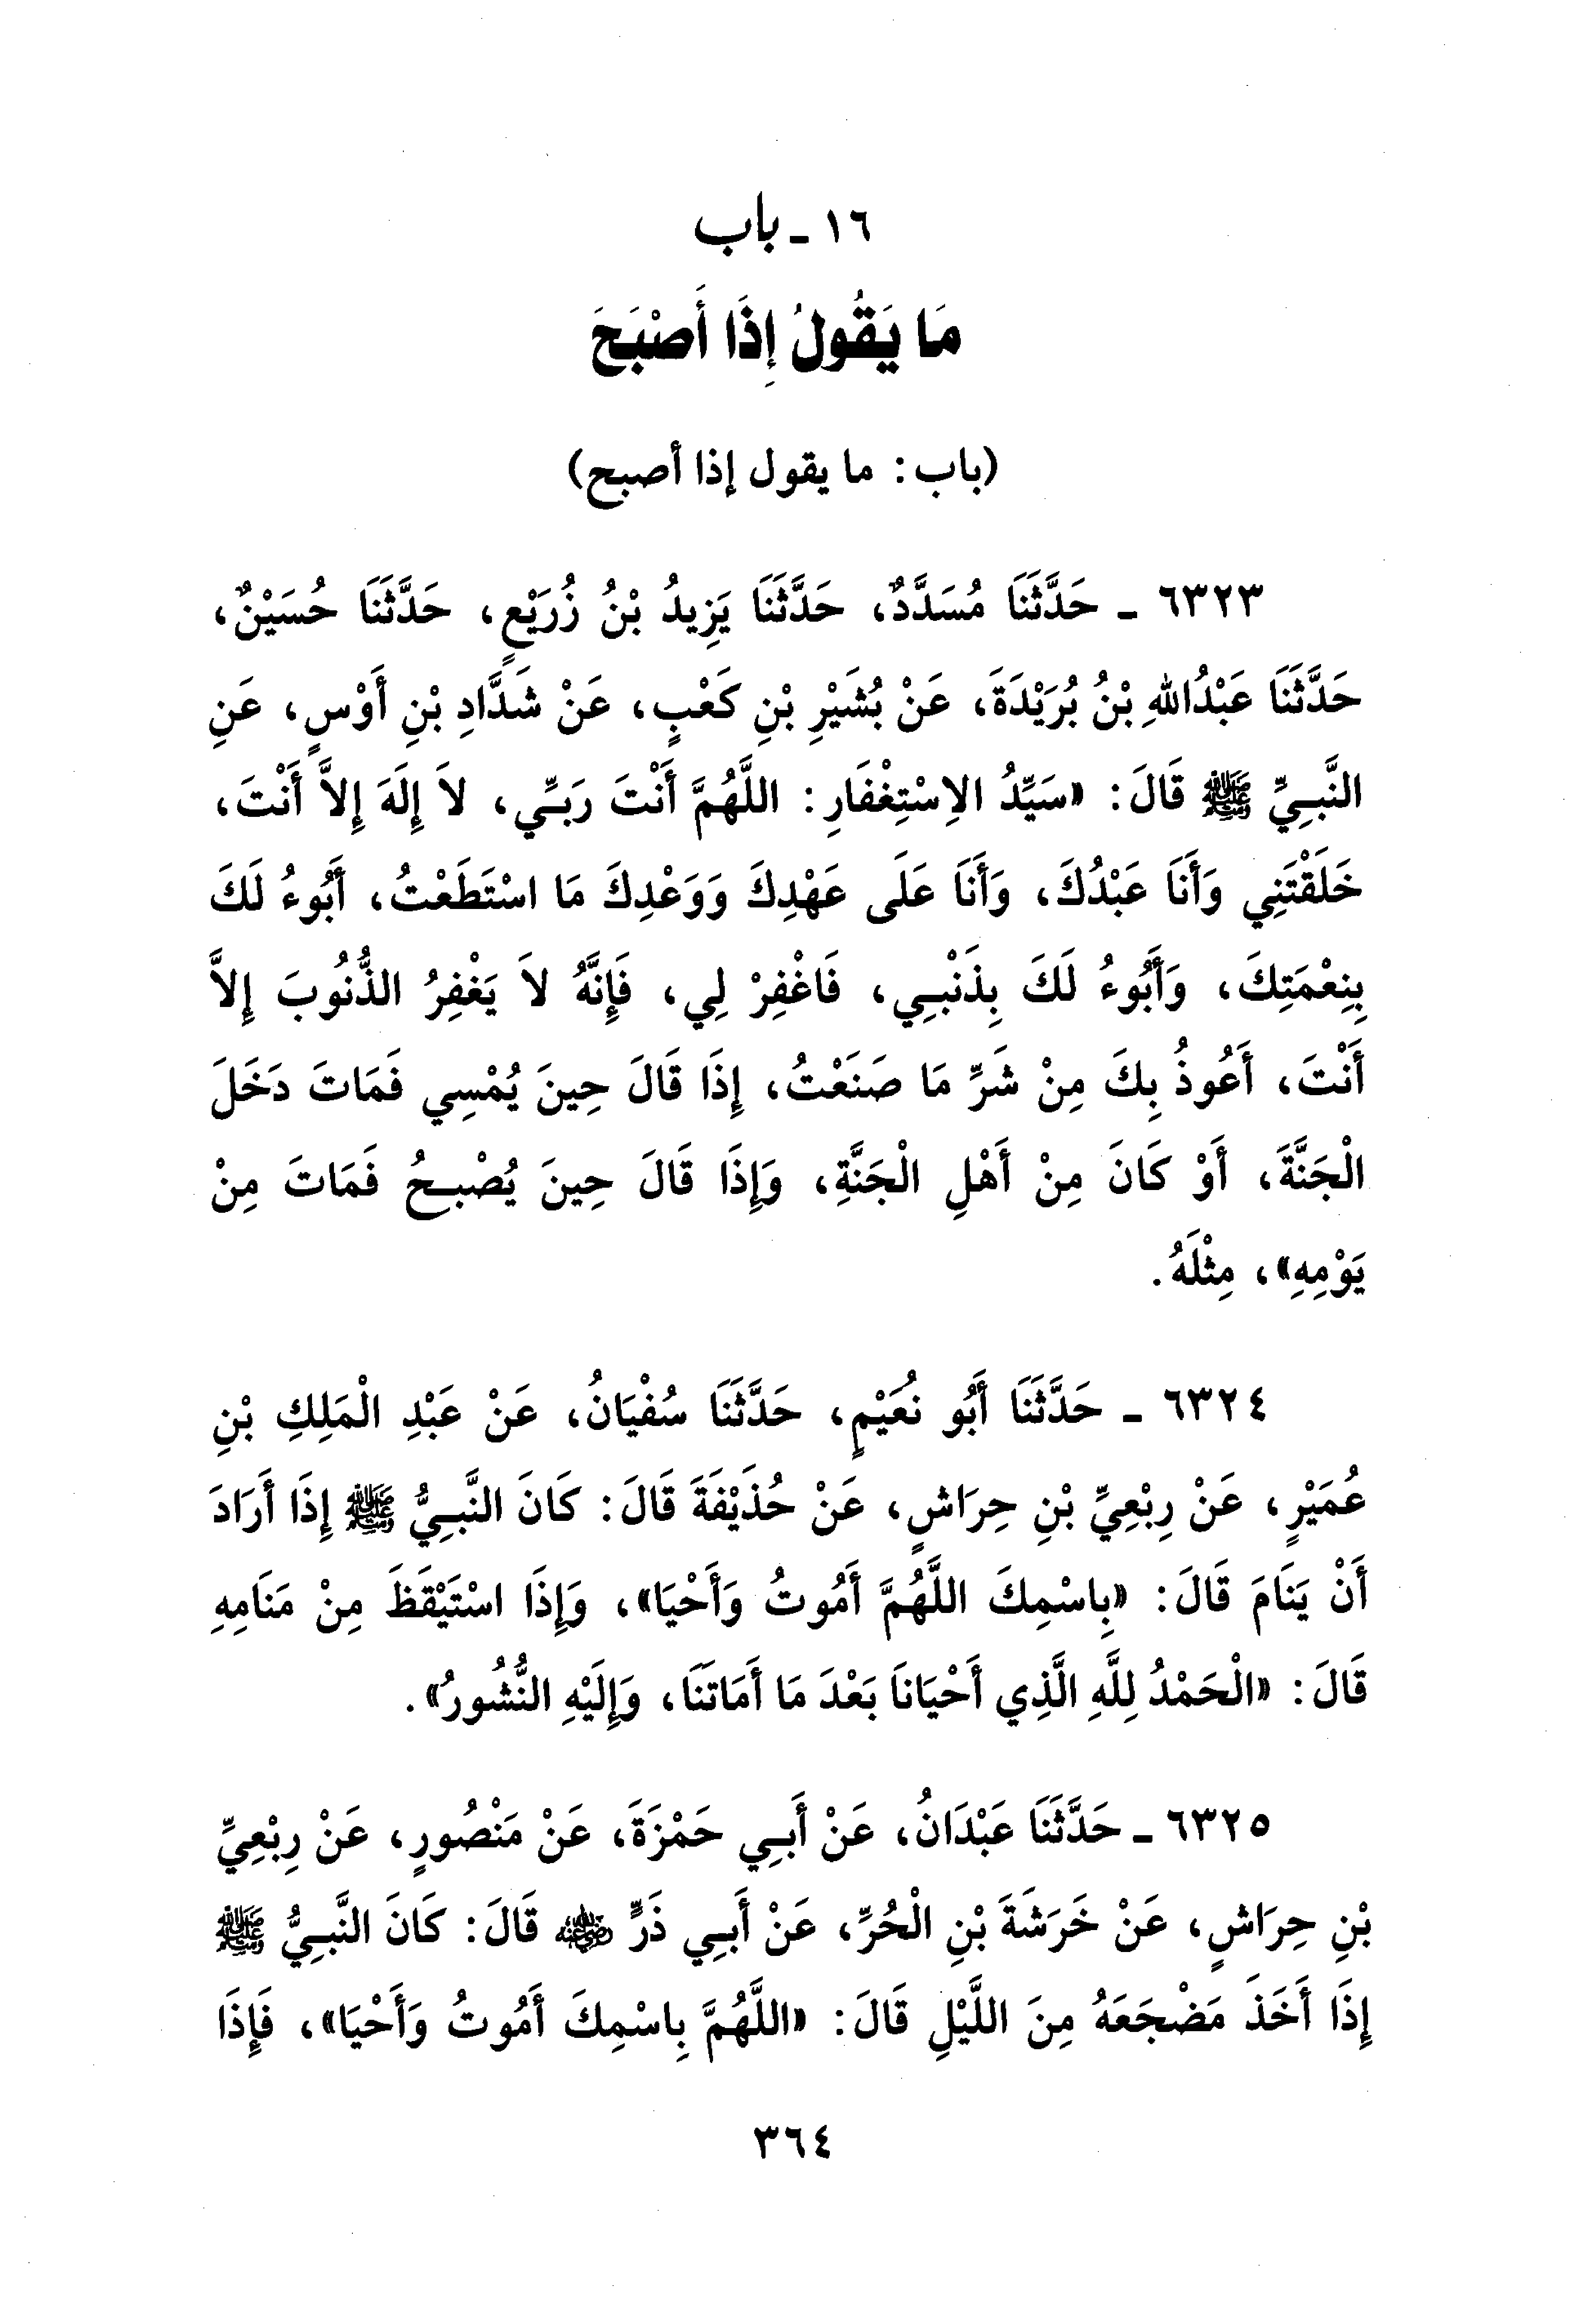 ١٦ ـ باب
مَا يَقُولُ إِذَا أَصْبَحَ
(باب: ما يقول إذا أصبح)
٦٣٢٣ ـ حَدَّثَنَا مُسَدَّدٌ، حَدَّثَنَا يَزِيدُ بْنُ زُرَيْعٍ، حَدَّثَنَا حُسَيْنٌ،
حَدَّثَنَا عَبْدُاللهِ بْنُ بُرَيْدَةَ، عَنْ بُشَيْرِ بْنِ كَعْبٍ، عَنْ شَدَّادِ بْنِ أَوْسٍ، عَنِ
النَّبِيِّ ﷺ قَالَ: «سَيِّدُ الاِسْتِغْفَارِ: اللَّهُمَّ أَنْتَ رَبِّي، لاَ إِلَهَ إِلاَّ أَنْتَ،
خَلَقْتَنِي وَأَنَا عَبْدُكَ، وَأَنَا عَلَى عَهْدِكَ وَوَعْدِكَ مَا اسْتَطَعْتُ، أَبُوءُ لَكَ
بِنِعْمَتِكَ، وَأَبُوءُ لَكَ بِذَنْبِي، فَاغْفِرْ لِي، فَإِنَّهُ لاَ يَغْفِرُ الذُّنُوبَ إِلاَّ
أَنْتَ، أَعُوذُ بِكَ مِنْ شَرِّ مَا صَنَعْتُ، إِذَا قَالَ حِينَ يُمْسِي فَمَاتَ دَخَلَ
الْجَنَّةَ، أَوْ كَانَ مِنْ أَهْلِ الْجَنَّةِ، وَإِذَا قَالَ حِينَ يُصْبِحُ فَمَاتَ مِنْ
يَوْمِهِ»، مِثْلَهُ.
٦٣٢٤ ـ حَدَّثَنَا أَبُو نُعَيْمٍ، حَدَّثَنَا سُفْيَانُ، عَنْ عَبْدِ الْمَلِكِ بْنِ
عُمَيْرٍ، عَنْ رِبْعِيِّ بْنِ حِرَاشٍ، عَنْ حُذَيْفَةَ قَالَ: كَانَ النَّبِيُّ ﷺ إِذَا أَرَادَ
أَنْ يَنَامَ قَالَ: «بِاسْمِكَ اللَّهُمَّ أَمُوتُ وَأَحْيَا»، وَإِذَا اسْتَيْقَظَ مِنْ مَنَامِهِ
قَالَ: «الْحَمْدُ لِلَّهِ الَّذِي أَحْيَانَا بَعْدَ مَا أَمَاتَنَا، وَإِلَيْهِ النُّشُورُ».
٦٣٢٥ ـ حَدَّثَنَا عَبْدَانُ، عَنْ أَبِي حَمْزَةَ، عَنْ مَنْصُورٍ، عَنْ رِبْعِيِّ
بْنِ حِرَاشٍ، عَنْ خَرَشَةَ بْنِ الْحُرِّ، عَنْ أَبِي ذَرٍّ رضي الله عنه قَالَ: كَانَ النَّبِيُّ ﷺ
إِذَا أَخَذَ مَضْجَعَهُ مِنَ اللَّيْلِ قَالَ: «اللَّهُمَّ بِاسْمِكَ أَمُوتُ وَأَحْيَا»، فَإِذَا
٣٦٤